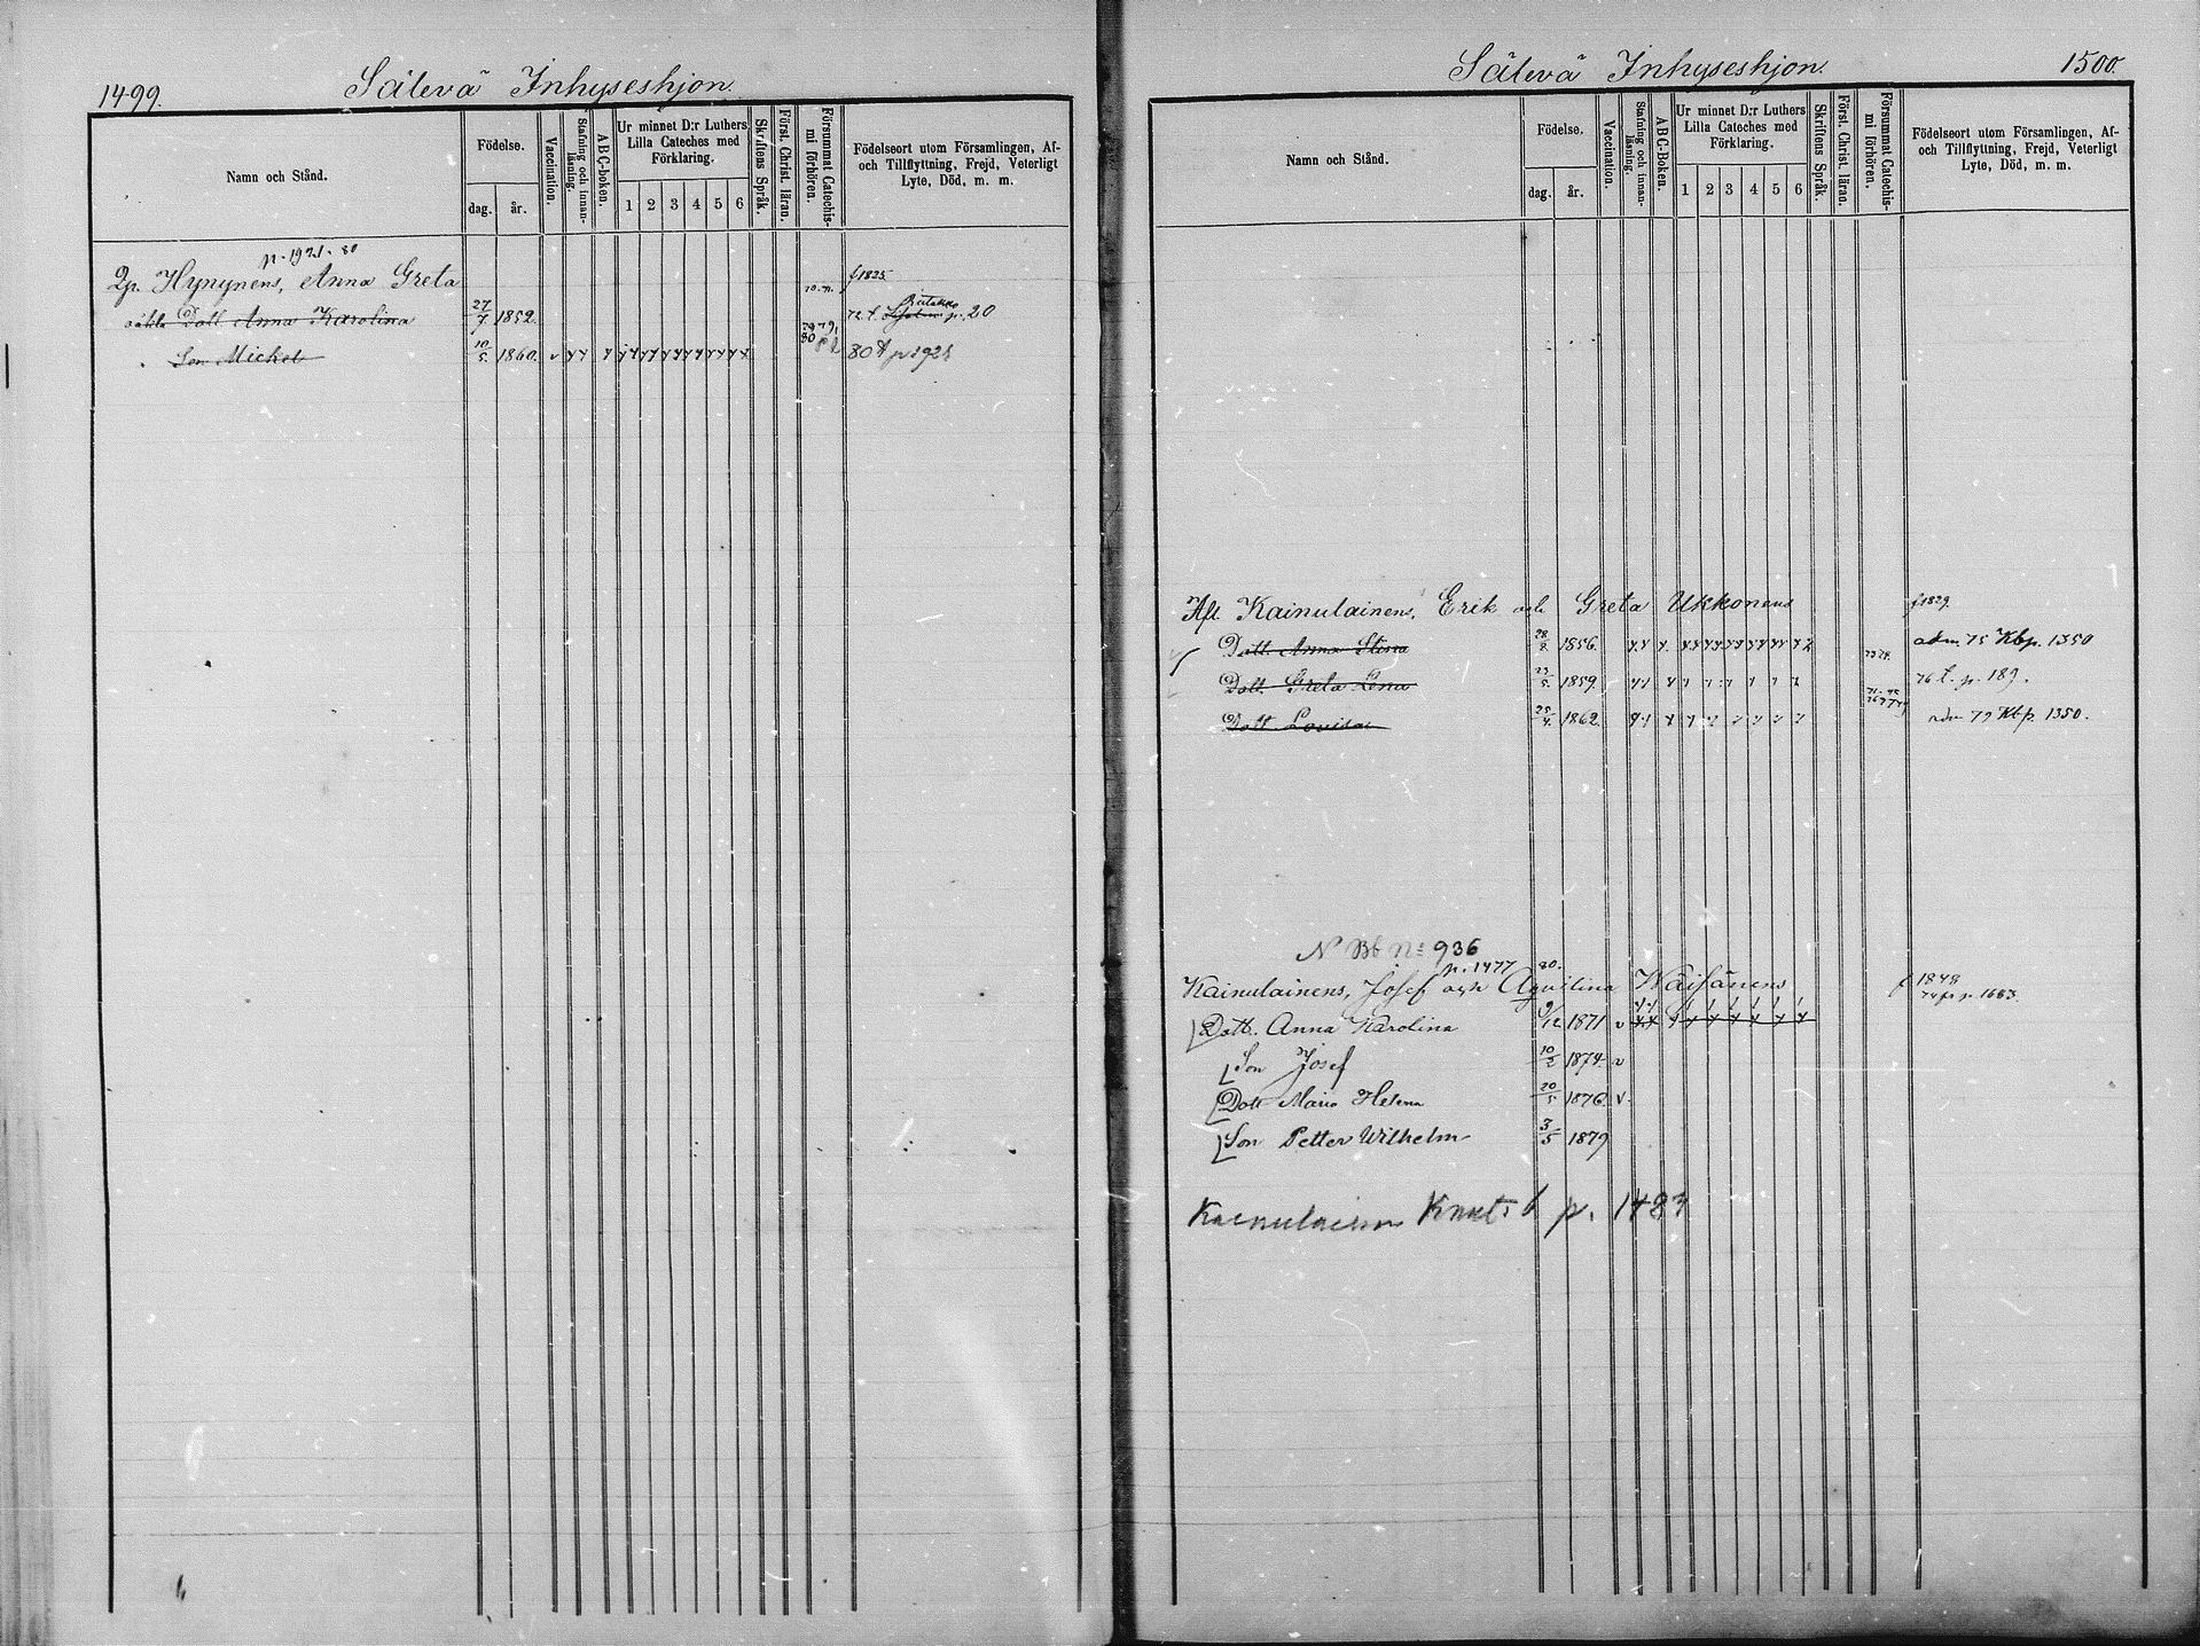 1499.
Sälevä Inhyseshjon
Namn och Stånd.
Födelse.
dag.
år.
Vaccination.
Stafning och innan-läsning.
ABC-boken.
Ur minnet D:r Luthers
Lilla Cateches med
Förklaring.
1 2 3 4 5 6
Skriftens Språk.
Först. Christ. läran.
Försummat Catechis-
mi förhören.
Födelseort utom Församlingen, Af-
och Tillflyttning, Frejd, Veterligt
Lyte, Död, m. m.
p. 1921. 80
Hynynens, Anna Greta f 1825
Dott Anna Karolina 27/7 1852. 72 t. p. 20
Son Michel 10/5 1860. 80
Sälevä Inhyseshjon.
1500.
Namn och Stånd.
Födelse.
dag.
år.
Vaccination.
Stafning och innan-läsning.
ABC-Boken.
Ur minnet D:r Luthers
Lilla Cateches med
Förklaring.
1 2 3 4 5 6
Skriftens Språk.
Först. Christ. läran.
Försummat Catechis-
mi förhören.
Födelseort utom Församlingen, Af-
och Tillflyttning, Frejd, Veterligt
Lyte, Död, m. m.
Afl. Kainulainens, Erik och Greta Ukkonens f 1829.
Dott. Anna Stina 1856. adm 75 Kbp. 1350
Dott. Greta Lena 1859. 76 t. p. 189.
Dott. Lovisa 25/4 1862. adm 79 Kbp. 1350.
N Bb No 936
p. 1477 80.
Kainulainens, Josef och Agustina Wäisänens f 1848
Dott. Anna Karolina 9/12 1871 v
Son Josef 10/2 1874. v
Dott Maria Helena 20/5 1876 v.
Son Petter Wilhelm 3/5 1879
Kainulainen p. 1487